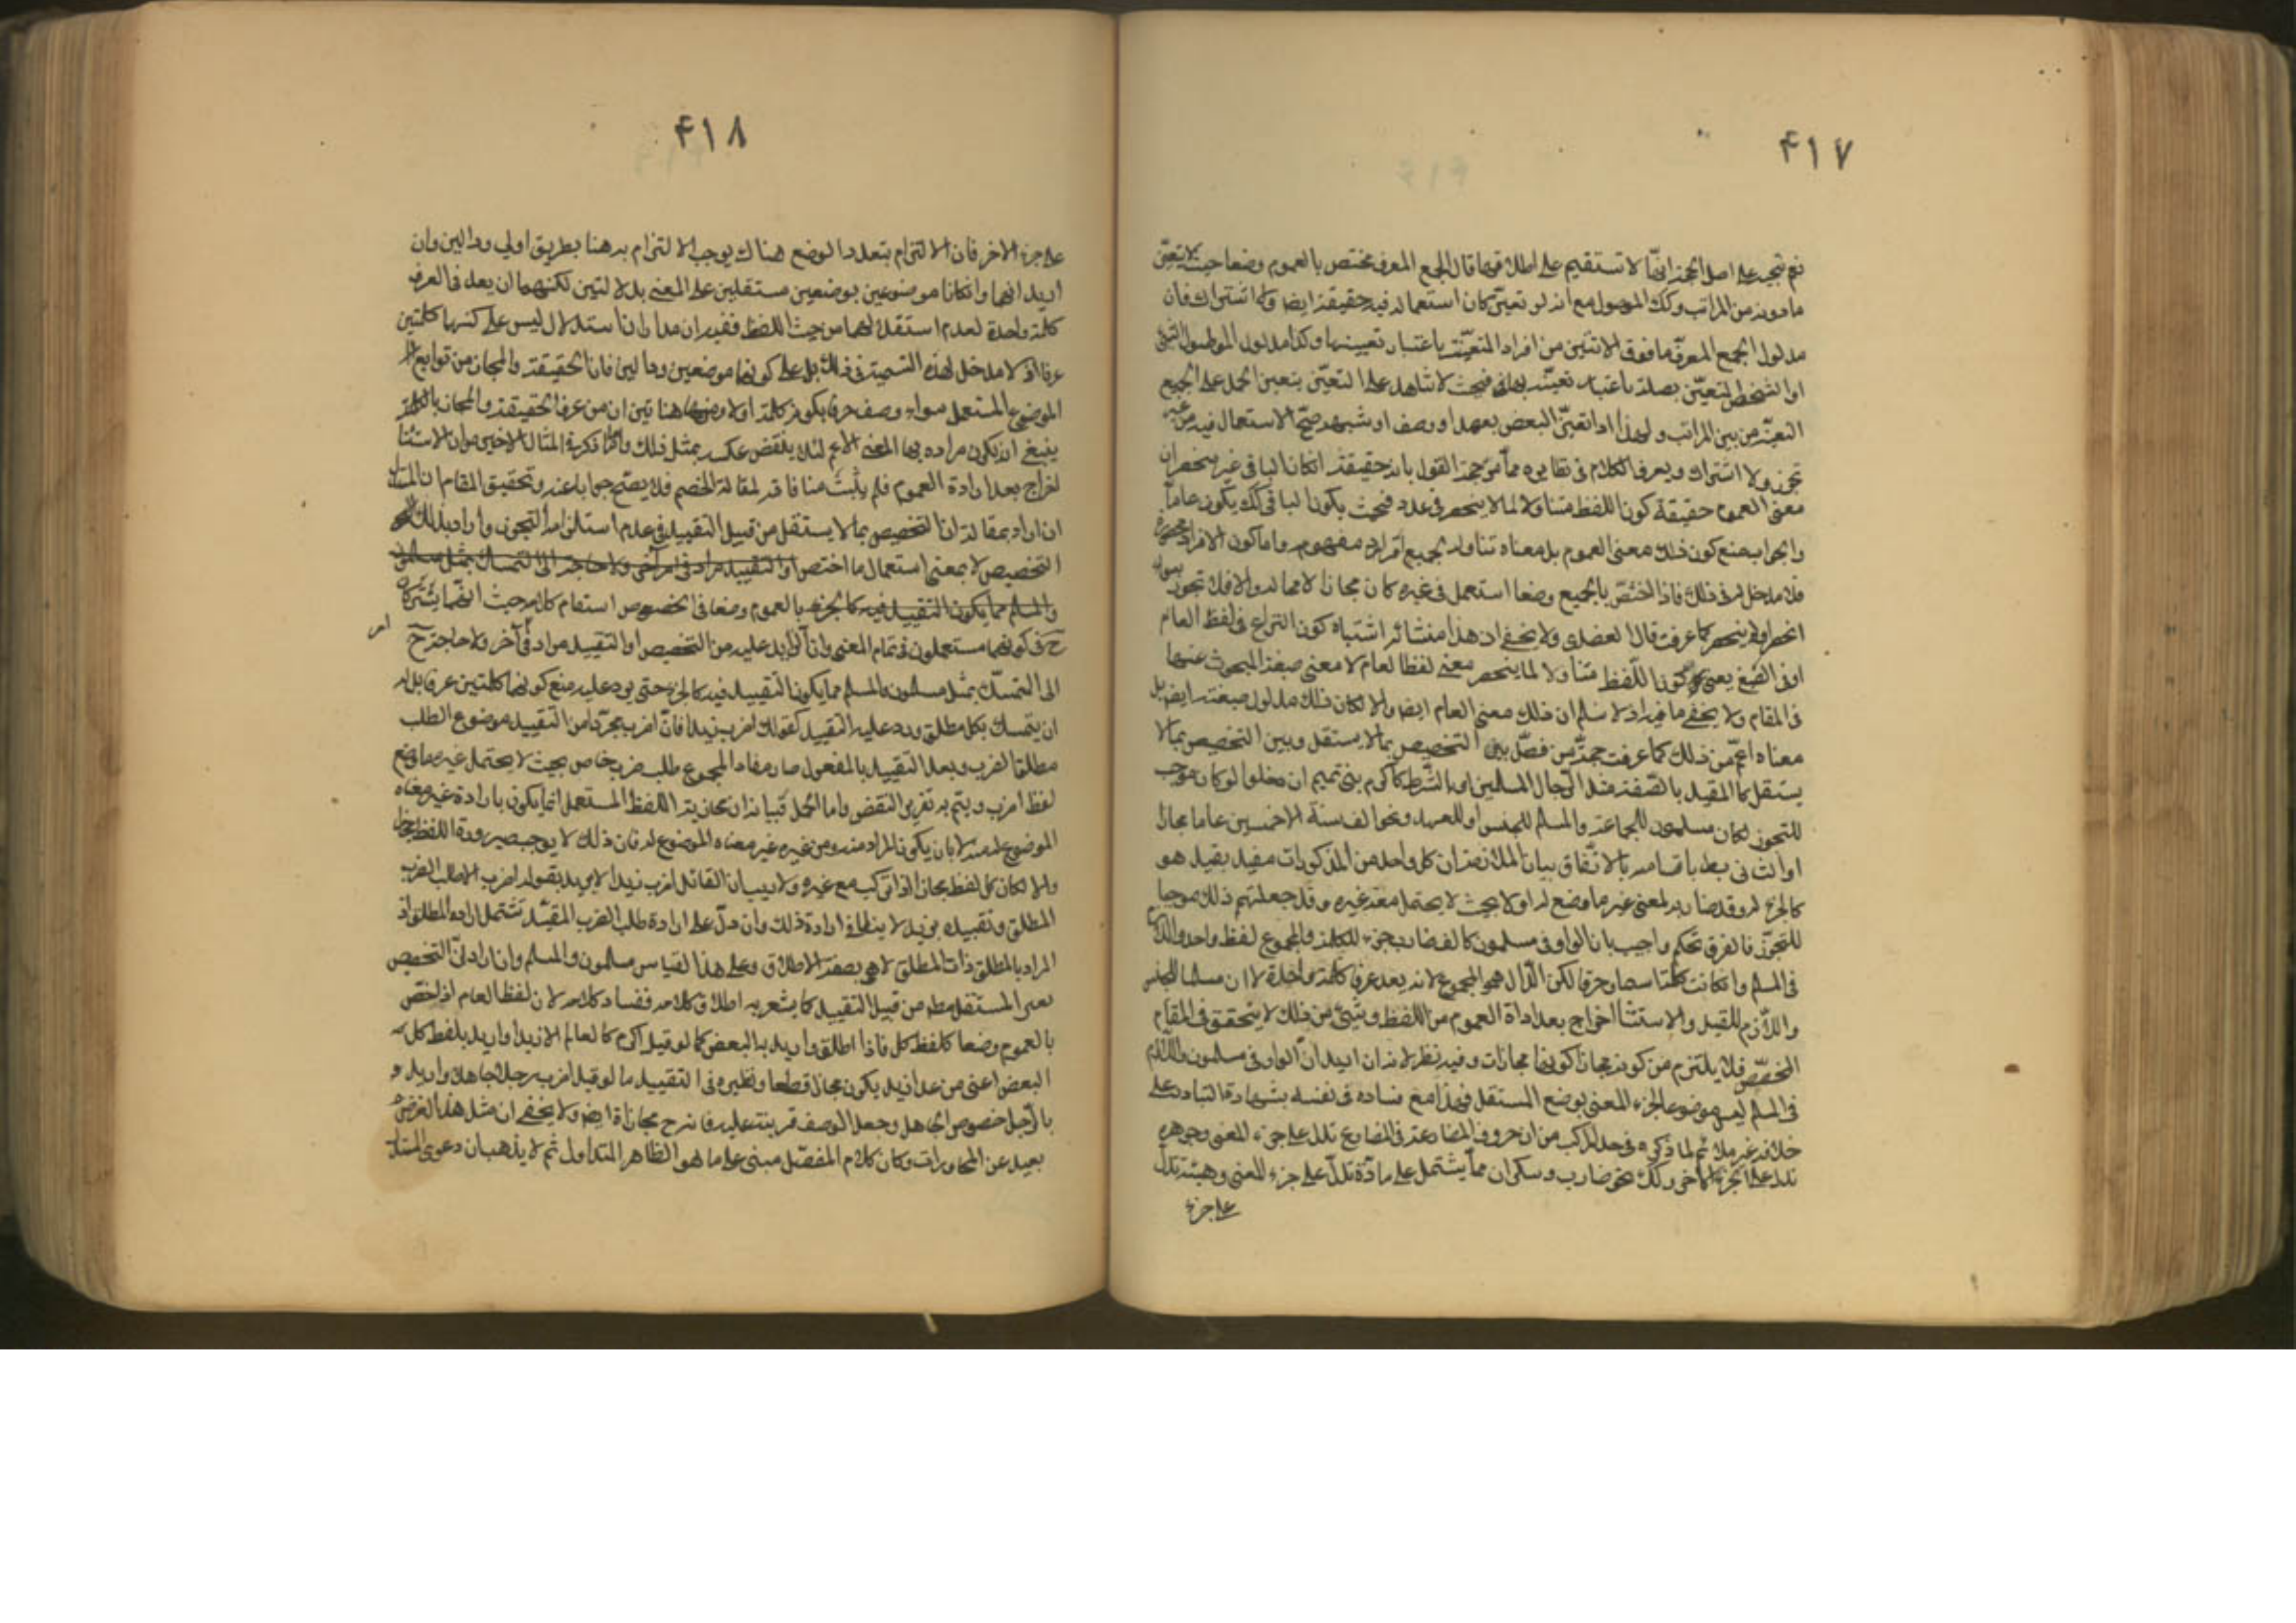 ۴۱۷
نعم يتجه على اصل الحجة انها لا تستقيم على اطلاقها فان الجمع المعرف مختص بالعموم وضعا حيث لا تعين
ما دونه من المراتب وكك الموصول مع انه لو تعين كان استعماله فيه حقيقة ايضا ولا اشتراك فان
مدلول الجمع المعرف ما فوق الاثنين من افراد المتعينة باعتبار تعيينها وكذا مدلول الموصول الشئ
او الشخص المتعين بصلته باعتبار تعينه بها فحيث لا شاهد على التعين يتعين الحمل على الجميع
لتعينه من بين المراتب ولهذا اذا تعين البعض بعهد او وصف او شبهه صح الاستعمال فيه من غير
تجوز ولا اشتراك ويعرف الكلام في نظايره مما مر حجة القول بانه حقيقة ان كان الباقي غير منحصر ان
معنى العموم حقيقة كون اللفظ متناولا لما لا ينحصر في عدد فحيث يكون الباقي كك يكون عاما
والجواب منع كون ذلك معنى العموم بل معناه تناوله لجميع افراد مفهومه واما كون الافراد محصورة
فلا مدخل له في ذلك فاذا اختص بالجميع وضعا استعمل في غيره كان مجازا لا محالة والا فلا تجوز سواء
انحصر او لم ينحصر كما عرفت قال العضدي ولا يخفى ان هذا منشائه اشتباه كون النزاع في لفظ العام
او في الصيغ يعني كون اللفظ متناولا لما ينحصر معنى لفظ العام لا معنى صيغة المبحوث عنها
في المقام ولا يخفى ما فيه اذ لا نسلم ان ذلك معنى العام ايضا والا لكان ذلك مدلول صيغته ايض بل
معناه اعم من ذلك كما عرفت حجة من فصل بين التخصيص بما لا يستقل وبين التخصيص بما لا
يستقل كالمقيد بالصفة مثل الرجال المسلمين او بالشرط كاكرم بني تميم ان دخلوا لو كان موجب
للتجوز لكان مسلمون للجماعة والمسلم للجنس او للعهد ونحو الف سنة الا خمسين عاما مجازا
بالاتفاق بيان الملازمة ان كل واحد من المذكورات مقيد بقيد هو
كالجزء له وقد صار به لمعنى غير ما وضع له اولا بحيث لا يحتمل معه غيره وقد جعلتم ذلك موجبا
للتجوز فالفرق تحكم واجيب بان الواو في مسلمون كالف ضارب جزء للكلمة والمجموع لفظ واحد واللام
في المسلم وان كانت كلمة اسما وحرفا لكن الدال هو المجموع لانه يعد عرفا كلمة واحدة لا ان مسلما للجنس
واللام للقيد والاستثناء اخراج بعد ارادة العموم من اللفظ وشئ من ذلك لا يتحقق في المقام
المخصص فلا يلتزم من كونه مجازا كونها مجازات وفيه نظر لانه ان اريد ان الواو في مسلمون واللام
في المسلم ليس موضوعا لجزء المعنى بوضع المستقل فهذا مع فساده في نفسه بشهادة التبادر على
خلافه غير ملائم لما ذكره في حد المركب من ان حروف المضارعة في المضارع تدل على جزء المعنى وجوهره
تدل على الجزء الاخر وكك نحو ضارب وسكران مما يشتمل على مادة تدل على جزء المعنى وهيئة تدل
على جزء
۴۱۸
على جزء الاخر فان الالتزام بتعدد الوضع هناك يوجب الالتزام به هنا بطريق اولى ودالين وان
اريد انهما وان كانا موضوعين بوضعين مستقلين على المعنى بدلالتين لكنهما ان يعد في العرف
كلمة واحدة لعدم استقلالهما من حيث اللفظ ففيه ان مدار الاستدلال ليس على كونها كلمتين
عرفا اذ لا مدخل لهذه التسمية في ذلك بل على كونهما موضوعين ودالين فان الحقيقة والمجاز من توابع
الموضوع المستعمل سواء وصف عرفا بكونه كلمة اولا ومن هنا تبين ان من عرف الحقيقة والمجاز بالكلمة
ينبغي ان يكون مراده بها المعنى الاعم لئلا ينقض عكسه بمثل ذلك واما ما ذكره في المثال الاخير من ان الاستثناء
اخراج بعد ارادة العموم فلم يثبت منافاته لمقالة الخصم فلا يصلح جوابا عنه وتحقيق المقام ان المستدل
ان اراد بمقالته ان التخصيص بما لا يستقل من قبيل التقييد في عدم استلزامه التجوز واراد بذلك
التخصيص لا بمعنى استعمال ما اختص او التقييد مراد في امر آخر ولا حاجة الى التمسك بمثل مسلمون
والمسلم مما يكون التقييد فيه كالجزء بالعموم وضعا في الخصوص استقام كلامه حيث انهما يشتركان
ح في كونهما مستعملين في تمام المعنى وان الزايد عليه من التخصيص او التقييد مراد في آخر ولا حاجة ح
امر
الى التمسك بمثل مسلمون والمسلم مما يكون التقييد فيه كالجزء حتى يرد عليه منع كونهما كلمتين عرفا بل له
ان يتمسك بكل مطلق ورد عليه التقييد كقولك اضرب زيدا فان اضرب مجردا من التقييد موضوع لطلب
مطلق الضرب وبعد التقييد بالمفعول صار مفاد المجموع طلب ضرب خاص بحيث لا يحتمل غيره ما وضع
لفظ اضرب ويتم به تقرير النقض واما الحل فبيانه ان مجازية اللفظ المستعمل انما يكون بارادة غير معناه
الموضوع له منه لا بان يكون المراد منه ومن غيره غير معناه الموضوع له فان ذلك لا يوجب صيرورة اللفظ مجازا
والا لكان كل لفظ مجازا اذا تركب مع غيره ولا ريب ان القائل اضرب زيدا لا يريد بقوله اضرب الا طلب الضرب
المطلق وتقييده بزيد لا ينافي ارادة ذلك وان دل على ارادة طلب الضرب المقيد تشتمل ارادة المطلق اذ
المراد بالمطلق ذات المطلق لا هو بصفة الاطلاق وعلى هذا القياس مسلمون والمسلم وان اراد ان التخصيص
بغير المستقل مطلقا من قبيل التقييد كما يشعر به اطلاق كلامه ففساد كلامه لان لفظ العام اذا اختص
بالعموم وضعا كلفظ كل فاذا اطلق واريد به البعض كما لو قيل اكرم كل عالم الا زيدا واريد بلفظ كل
البعض اعني من عدا زيد يكون مجازا قطعا ونظيره في التقييد ما لو قيل اضرب رجلا جاهلا واريد
بالرجل خصوص الجاهل وجعل الوصف قرينة عليه فانه ح مجاز ايض ولا يخفى ان مثل هذا الغرض
بعيد عن المحاورات وكان كلام المفصل مبني على ما هو الظاهر المتداول ثم لا يذهب ان دعوى المستدل